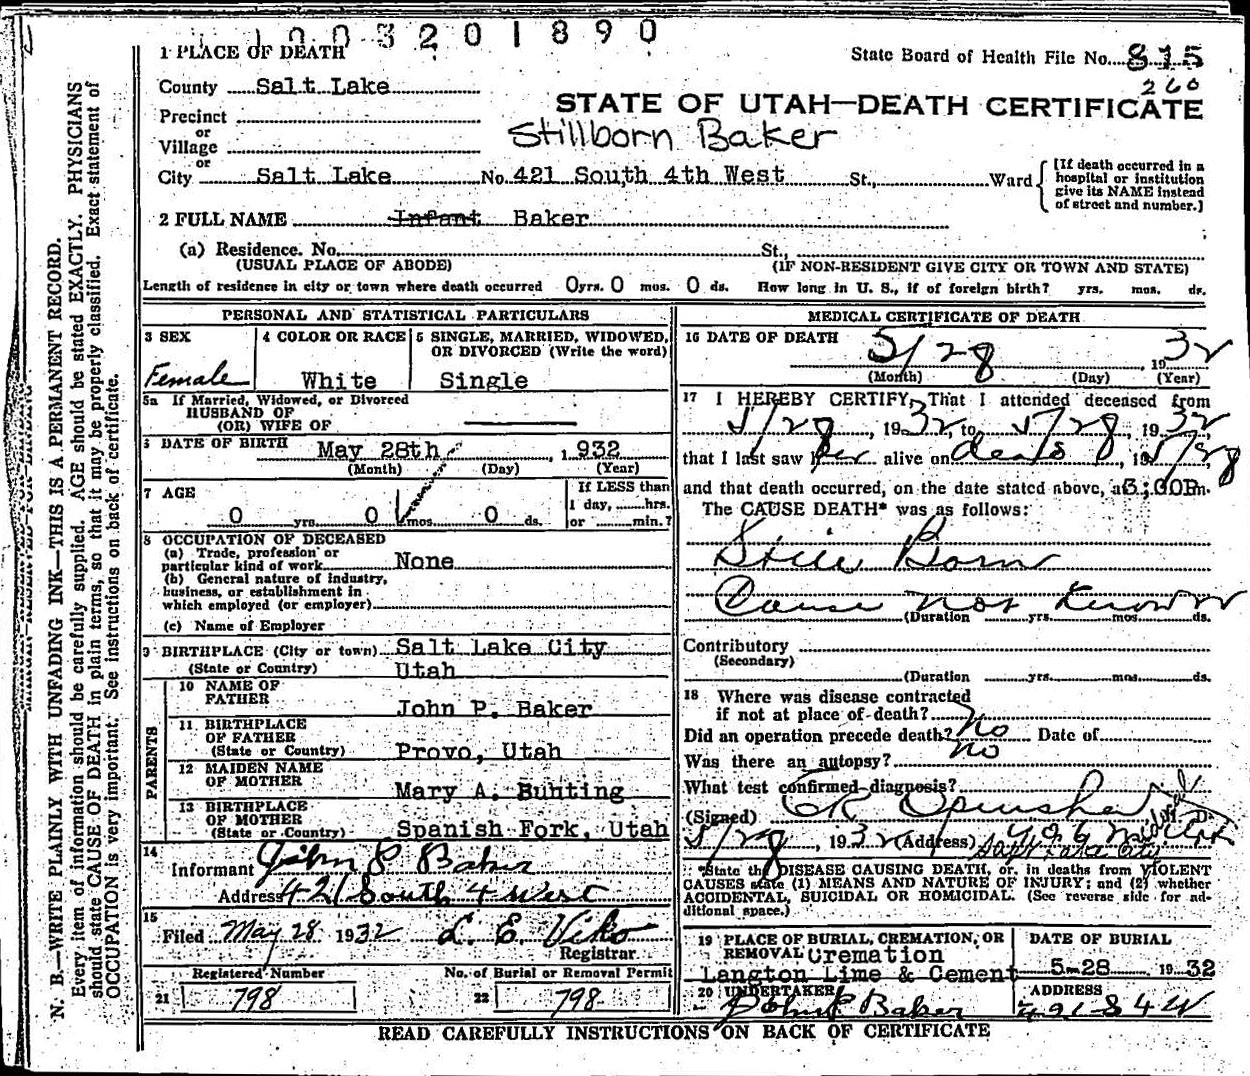 1003201890
1 PLACE OF DEATH
State Board of Health File No. 815
260
County Salt Lake
STATE OF UTAH—DEATH CERTIFICATE
Precinct
or
Stillborn Baker
Village
or
City Salt Lake No. 421 South 4th West St., Ward
[If death occurred in a
hospital or institution
give its NAME instead
of street and number.]
2 FULL NAME Infant Baker
(a) Residence. No. St.,
(USUAL PLACE OF ABODE) (IF NON-RESIDENT GIVE CITY OR TOWN AND STATE)
Length of residence in city or town where death occurred 0 yrs. 0 mos. 0 ds. How long in U. S., if of foreign birth? yrs. mos. ds.
PERSONAL AND STATISTICAL PARTICULARS
3 SEX
Female
4 COLOR OR RACE
White
5 SINGLE, MARRIED, WIDOWED,
OR DIVORCED (Write the word)
Single
5a If Married, Widowed, or Divorced
HUSBAND OF
(OR) WIFE OF
6 DATE OF BIRTH May 28th, 1932
(Month) (Day) (Year)
7 AGE
0 yrs. 0 mos. 0 ds.
If LESS than
1 day, hrs.
or min.?
8 OCCUPATION OF DECEASED
(a) Trade, profession or
particular kind of work None
(b) General nature of industry,
business, or establishment in
which employed (or employer)
(c) Name of Employer
9 BIRTHPLACE (City or town) Salt Lake City
(State or Country) Utah
PARENTS
10 NAME OF
FATHER John P. Baker
11 BIRTHPLACE
OF FATHER
(State or Country) Provo, Utah
12 MAIDEN NAME
OF MOTHER Mary A. Bunting
13 BIRTHPLACE
OF MOTHER
(State or Country) Spanish Fork, Utah
14
Informant John P Baker
Address 421 South 4 West
15
Filed May 28 1932 L. E. Viko
Registrar
Registered Number
21 798
No. of Burial or Removal Permit
22 798
MEDICAL CERTIFICATE OF DEATH
16 DATE OF DEATH
5/28, 1932
(Month) (Day) (Year)
17 I HEREBY CERTIFY, That I attended deceased from
5/28, 1932, to 5/28, 1932,
that I last saw her alive on 19
and that death occurred, on the date stated above, at 3:00P m.
The CAUSE DEATH* was as follows:
Still Born
Cause not known
(Duration yrs. mos. ds.
Contributory
(Secondary)
(Duration yrs. mos. ds.
18 Where was disease contracted
if not at place of death?
Did an operation precede death? No Date of
Was there an autopsy? no
What test confirmed diagnosis?
(Signed)
5/28, 1932 (Address)
Salt Lake City
*State the DISEASE CAUSING DEATH, or, in deaths from VIOLENT
CAUSES state (1) MEANS AND NATURE OF INJURY; and (2) whether
ACCIDENTAL, SUICIDAL OR HOMICIDAL. (See reverse side for ad-
ditional space.)
19 PLACE OF BURIAL, CREMATION, OR
REMOVAL Cremation
Langton Lime & Cement
DATE OF BURIAL
5-28 1932
20 UNDERTAKER
John P Baker
ADDRESS
421 S 4 W
READ CAREFULLY INSTRUCTIONS ON BACK OF CERTIFICATE
N. B.—WRITE PLAINLY WITH UNFADING INK—THIS IS A PERMANENT RECORD.
Every item of information should be carefully supplied. AGE should be stated EXACTLY. PHYSICIANS
should state CAUSE OF DEATH in plain terms, so that it may be properly classified. Exact statement of
OCCUPATION is very important. See instructions on back of certificate.